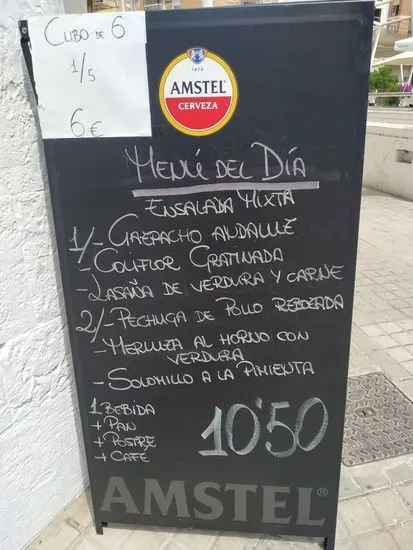 CUBO DE 6
1/5
6€
1870
AMSTEL
CERVEZA
MENÚ DEL DÍA
ENSALADA MIXTA
1/- GAZPACHO ANDALUZ
- COLIFLOR GRATINADA
- LASAÑA DE VERDURA Y CARNE
2/- PECHUGA DE POLLO REBOZADA
- MERLUZA AL HORNO CON
VERDURA
- SOLOMILLO A LA PIMIENTA
1 BEBIDA
+ PAN
+ POSTRE
+ CAFÉ
10'50
AMSTEL®